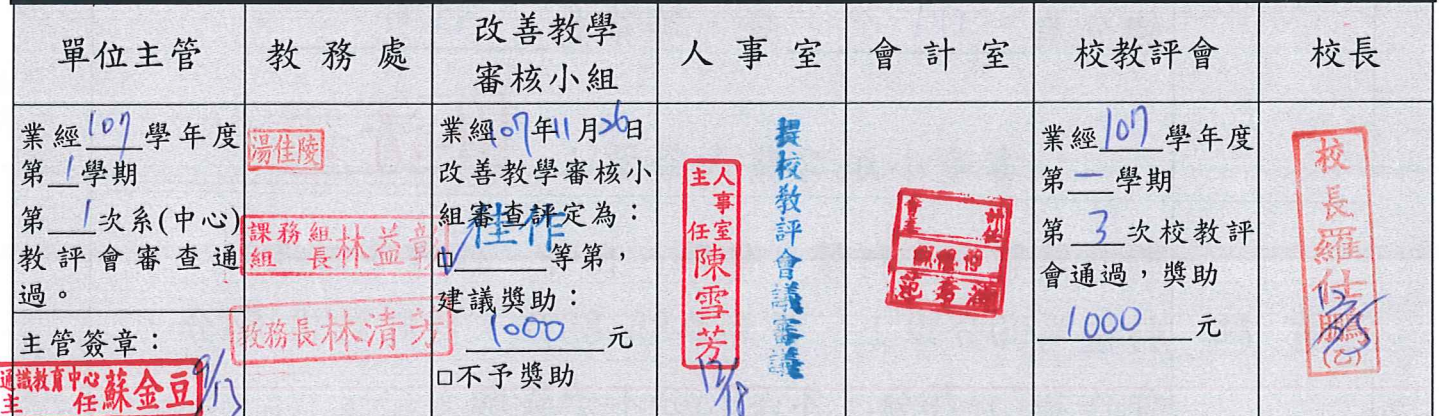 單位主管
教務處
改善教學
審核小組
人事室
會計室
校教評會
校長
業經107學年度
第1學期
第1次系(中心)
教評會審查通
過。
主管簽章：
通識教育中心
主任蘇金豆
9/13
湯佳陵
課務組
組長林益彰
教務長林清芳
業經107年11月26日
改善教學審核小
組審查評定為：
佳作
□等第，
建議獎助：
1000元
□不予獎助
人事室
主任陳雪芳
12/18
提校教評會議審議
業經107學年度
第一學期
第3次校教評
會通過，獎助
1000元
校長羅仕鵬
(乙)